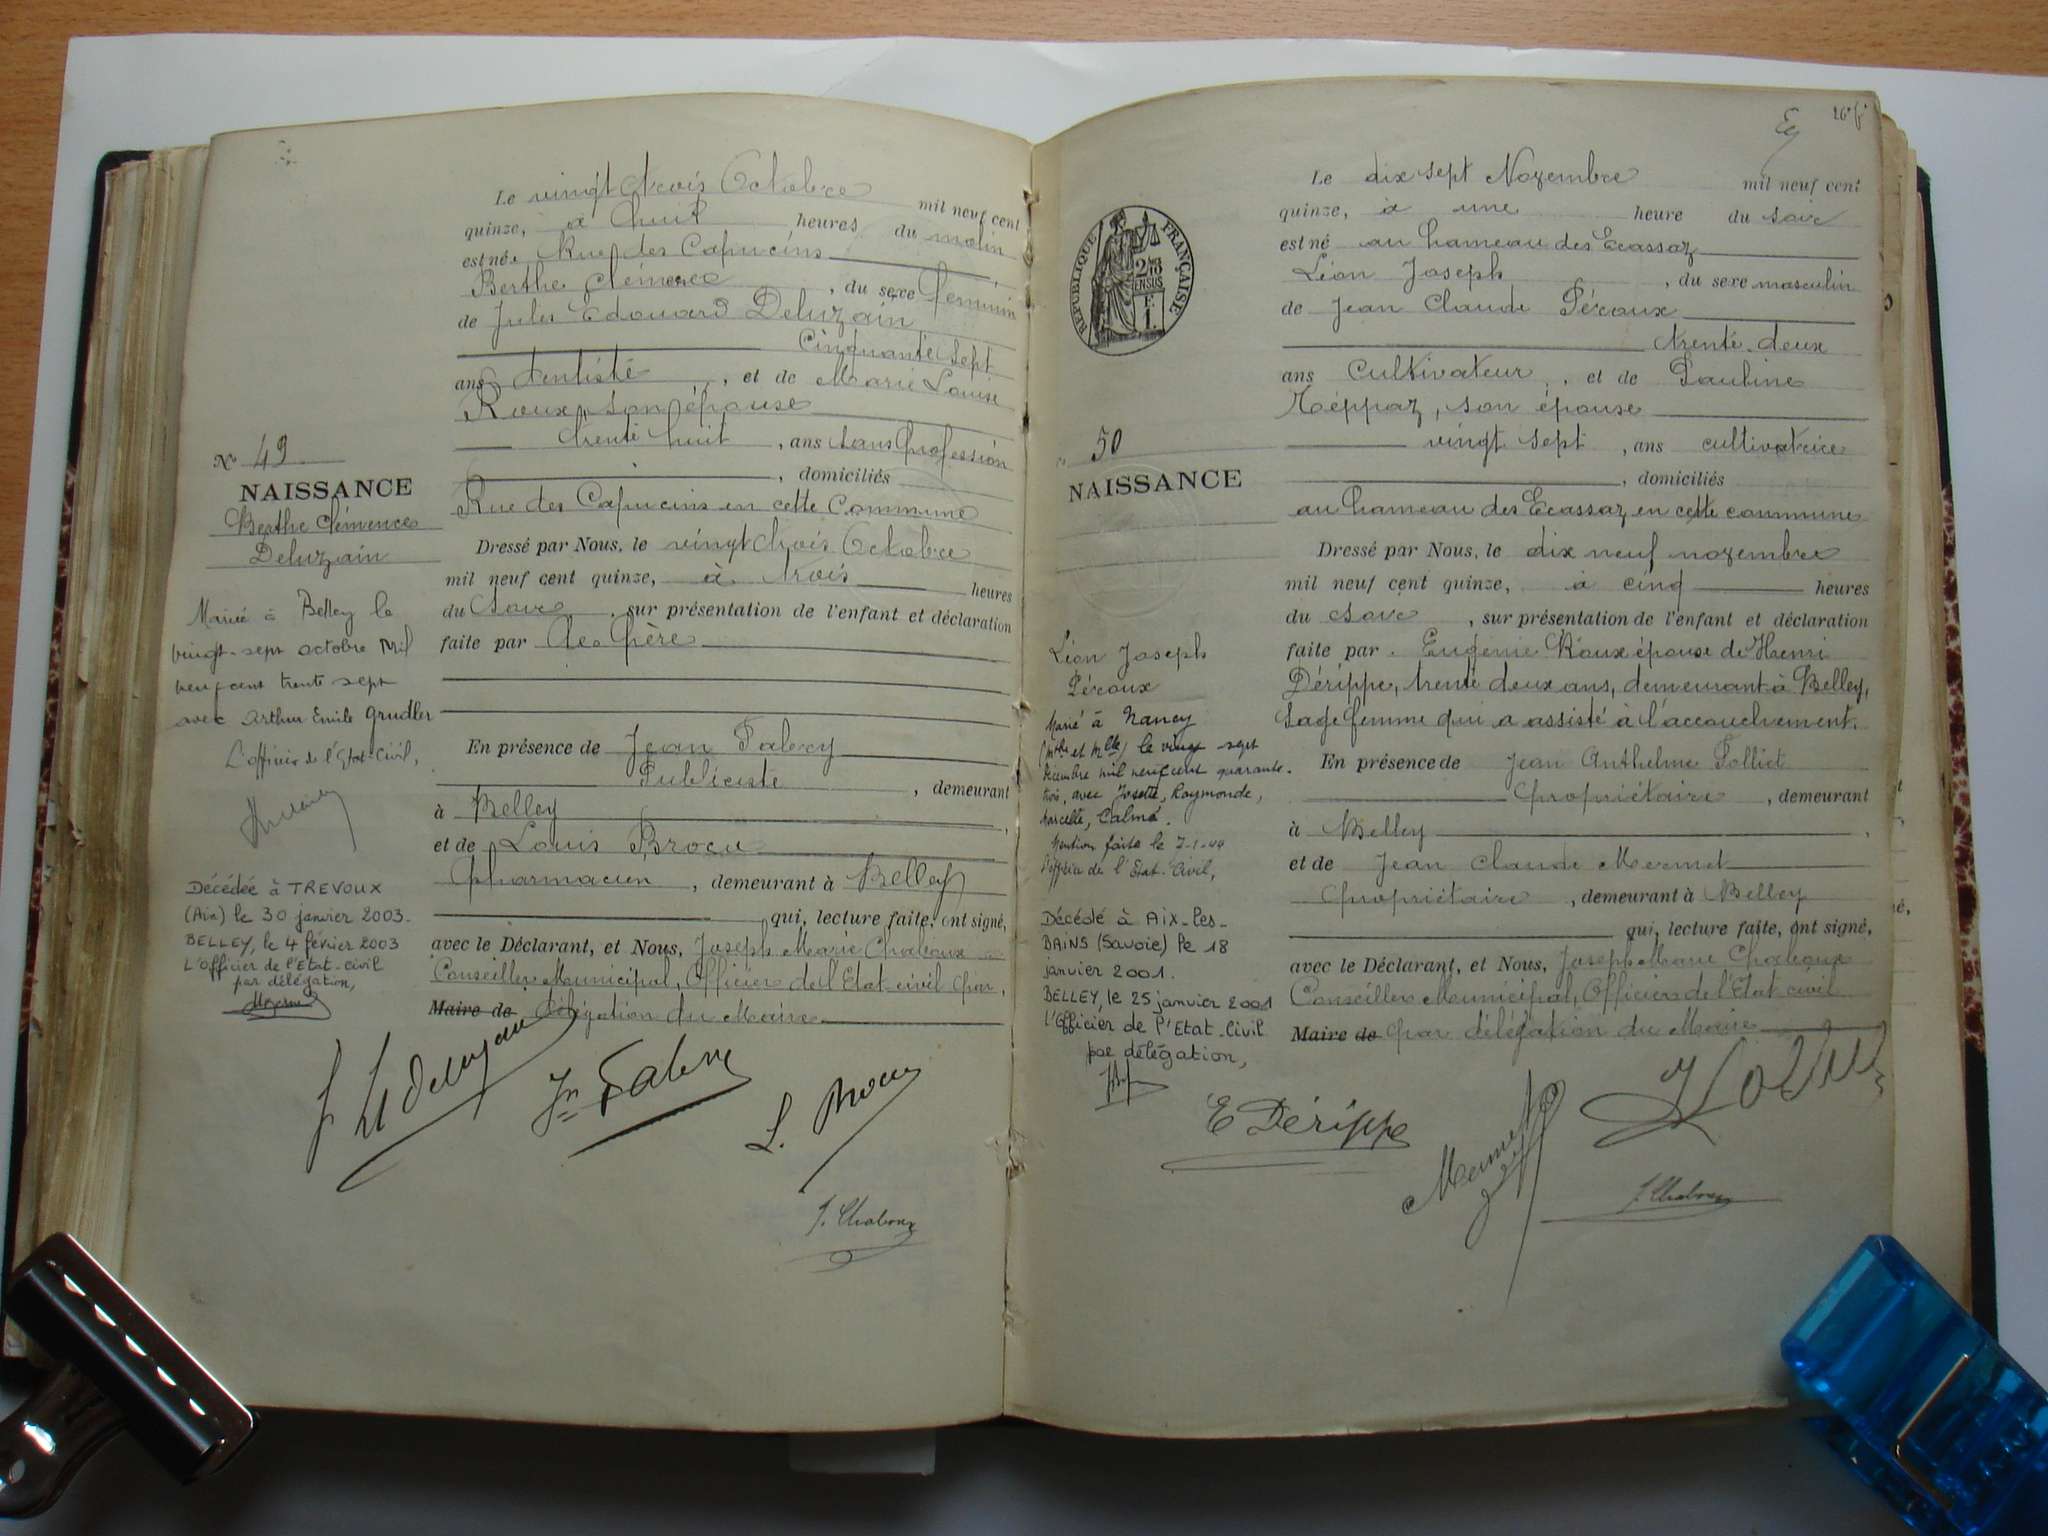 Le vingt trois Octobre mil neuf cent
quinze, à huit heures du matin
est né. Rue des Capucins
Berthe Clémence, du sexe feminin
de Jules Edouard Deluzain
Cinquante sept
ans dentiste, et de Marie Louise
Roux, son épouse
trente huit, ans sans profession
, domiciliés
Rue des Capucins en cette Commune
Dressé par Nous, le vingt trois Octobre
mil neuf cent quinze, à trois heures
du soir, sur présentation de l'enfant et déclaration
faite par le Père
En présence de Jean Fabry
Publiciste, demeurant
à Belley,
et de Louis Brocu
Pharmacien, demeurant à Belley
qui, lecture faite, ont signé,
avec le Déclarant, et Nous, Joseph Marie Chaboux
Conseiller Municipal, Officier de l'Etat civil par
Maire de délégation du Maire
No 49
NAISSANCE
Berthe Clémence
Deluzain
Marié à Belley le
vingt-sept octobre mil
neuf cent trente sept
avec Arthur Emile Grudler
L'officier de l'Etat-Civil,
Décédée à TREVOUX
(Ain) le 30 janvier 2003.
BELLEY, le 4 février 2003
L'Officier de l'Etat-civil
par délégation,
L. Brocu
J. Chaboux
26e f.
Le dix sept Novembre mil neuf cent
quinze, à une heure du soir
est né au hameau des Ecassaz
Léon Joseph, du sexe masculin
de Jean Claude Péroux
trente-deux
ans Cultivateur, et de Pauline
Héppaz, son épouse
vingt sept, ans cultivatrice
, domiciliés
au hameau des Ecassaz en cette commune
Dressé par Nous, le dix neuf novembre
mil neuf cent quinze, à cinq heures
du soir, sur présentation de l'enfant et déclaration
faite par Eugénie Roux épouse de Henri
Dérippe, trente deux ans, demeurant à Belley,
Sage femme qui a assisté à l'accouchement.
En présence de Jean Anthelme Folliet
propriétaire, demeurant
à Belley,
et de Jean Claude Mermet
propriétaire, demeurant à Belley
qui, lecture faite, ont signé,
avec le Déclarant, et Nous, Joseph Marie Chaboux
Conseiller Municipal, Officier de l'Etat civil
Maire de par délégation du Maire
RÉPUBLIQUE FRANÇAISE
50
NAISSANCE
Léon Joseph
Péroux
Marié à Nancy
(Mthe et Mlle) le vingt sept
décembre mil neuf cent quarante-
trois, avec Josette, Raymonde,
Marcelle, Calmé.
Mention faite le 7-1-44
l'officier de l'Etat-Civil,
Décédé à Aix-les-
BAINS (Savoie) le 18
janvier 2001.
BELLEY, le 25 janvier 2001
L'Officier de l'Etat-Civil
par délégation,
E Dérippe
Mermet
J. Chaboux